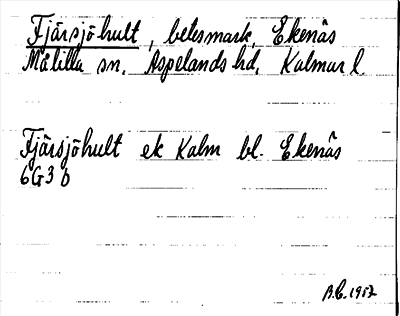 Fjärsjöhult, betesmark, Ekenäs
Målilla sn. Aspelands hd. Kalmar l.
Fjärsjöhult ek Kalm bl. Ekenäs
6G3b
B.C. 1952